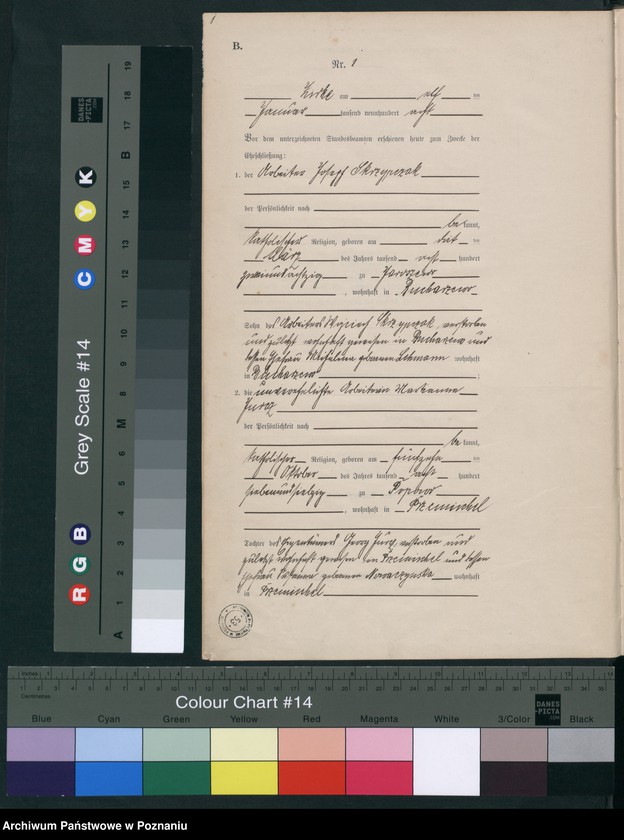 B.
Nr. 1
Zirke am elf ten
Januar tausend neunhundert acht
Vor dem unterzeichneten Standesbeamten erschienen heute zum Zwecke der
Eheschließung:
1. der Arbeiter Joseph Skrzypczak
der Persönlichkeit nach
be kannt,
katholischer Religion, geboren am ten
März des Jahres tausend acht hundert
zweiundachtzig zu
, wohnhaft in Bucharzewo
Sohn des Arbeiters Skrzypczak, verstorben
und zuletzt wohnhaft gewesen in Bucharzewo und
dessen Ehefrau geborenen Lehmann wohnhaft
in Bucharzewo
2. die unverehelichte Arbeiterin Marianna
Jurcz
der Persönlichkeit nach
be kannt,
katholischer Religion, geboren am fünfzehn ten
Oktober des Jahres tausend acht hundert
siebenundsiebzig zu Popowo
, wohnhaft in Przemienchel
Tochter des Eigentümers Georg Jurcz, verstorben und
zuletzt wohnhaft gewesen in Przemienchel und dessen
Ehefrau geborenen Nowaczynska wohnhaft
in Przemienchel
Grey Scale #14
DANES
-PICTA
.COM
A 1 2 3 4 5 6 M 8 9 10 11 12 13 14 15 B 17 18 19
R G B
C M Y K
Inches
Centimetres
Colour Chart #14
DANES
-PICTA
.COM
Blue Cyan Green Yellow Red Magenta White 3/Color Black
Archiwum Państwowe w Poznaniu